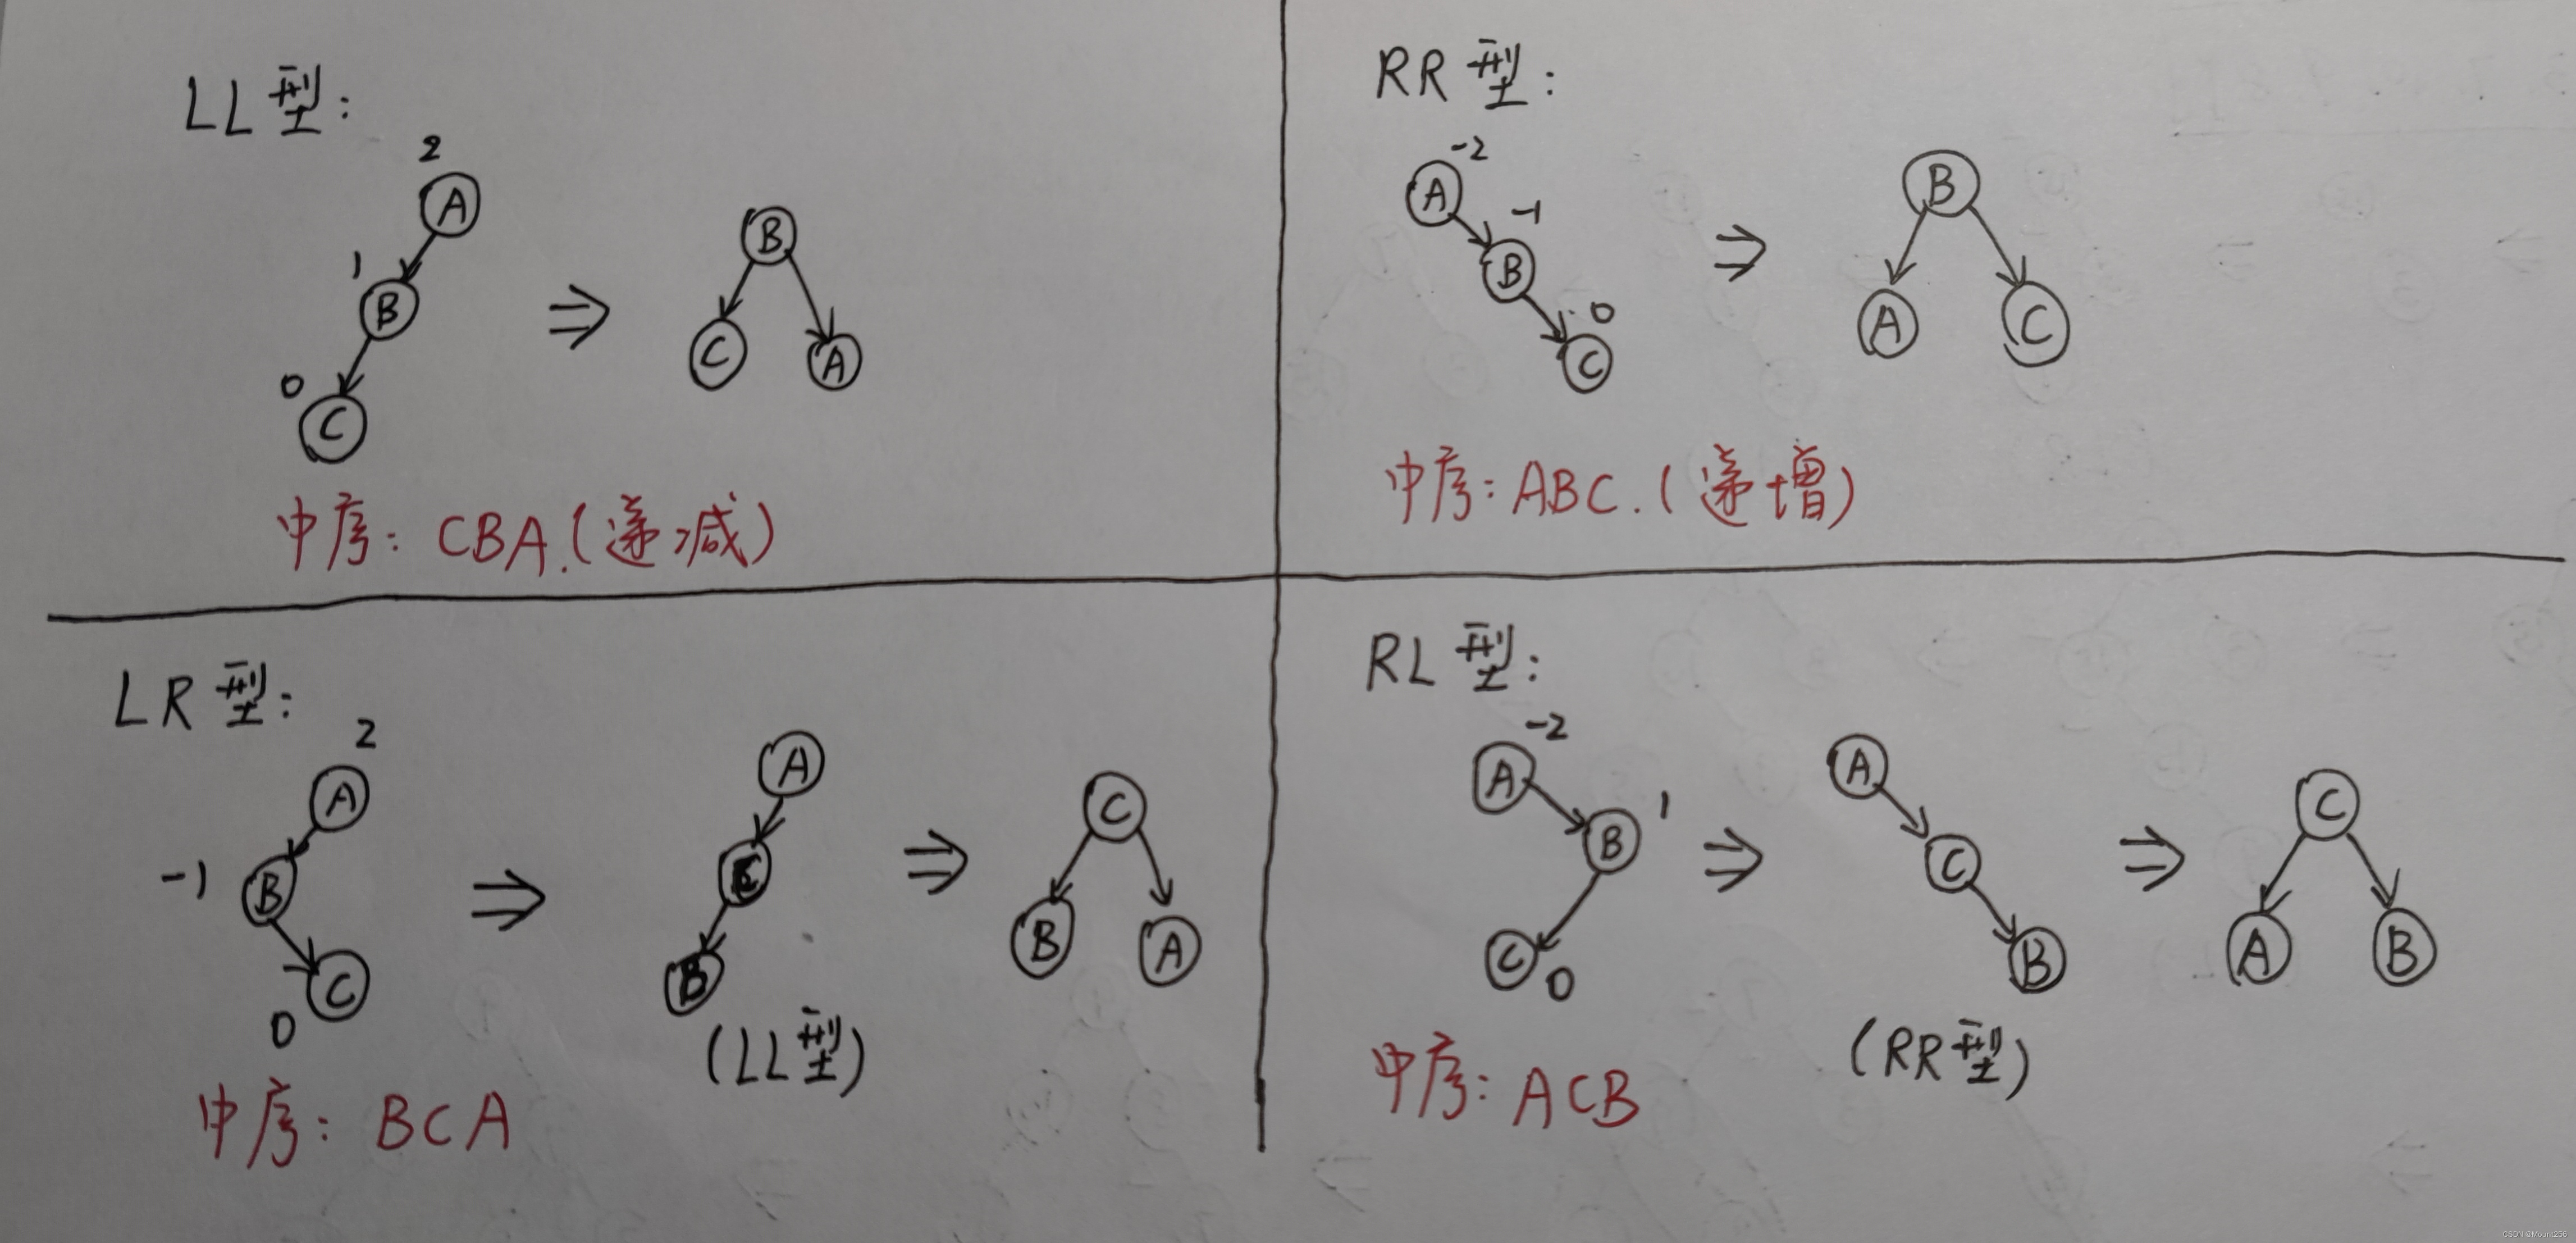 LL型:
2
A
1
B
0
C
⇒
B
C A
中序: CBA.(递减)
RR型:
-2
A
-1
B
0
C
⇒
B
A C
中序: ABC.(递增)
LR型:
2
A
-1
B
C
0
⇒
A
C
B
(LL型)
⇒
C
B A
中序: BCA
RL型:
-2
A
B 1
C 0
⇒
A
C
B
(RR型)
⇒
C
A B
中序: ACB
CSDN @Mount256